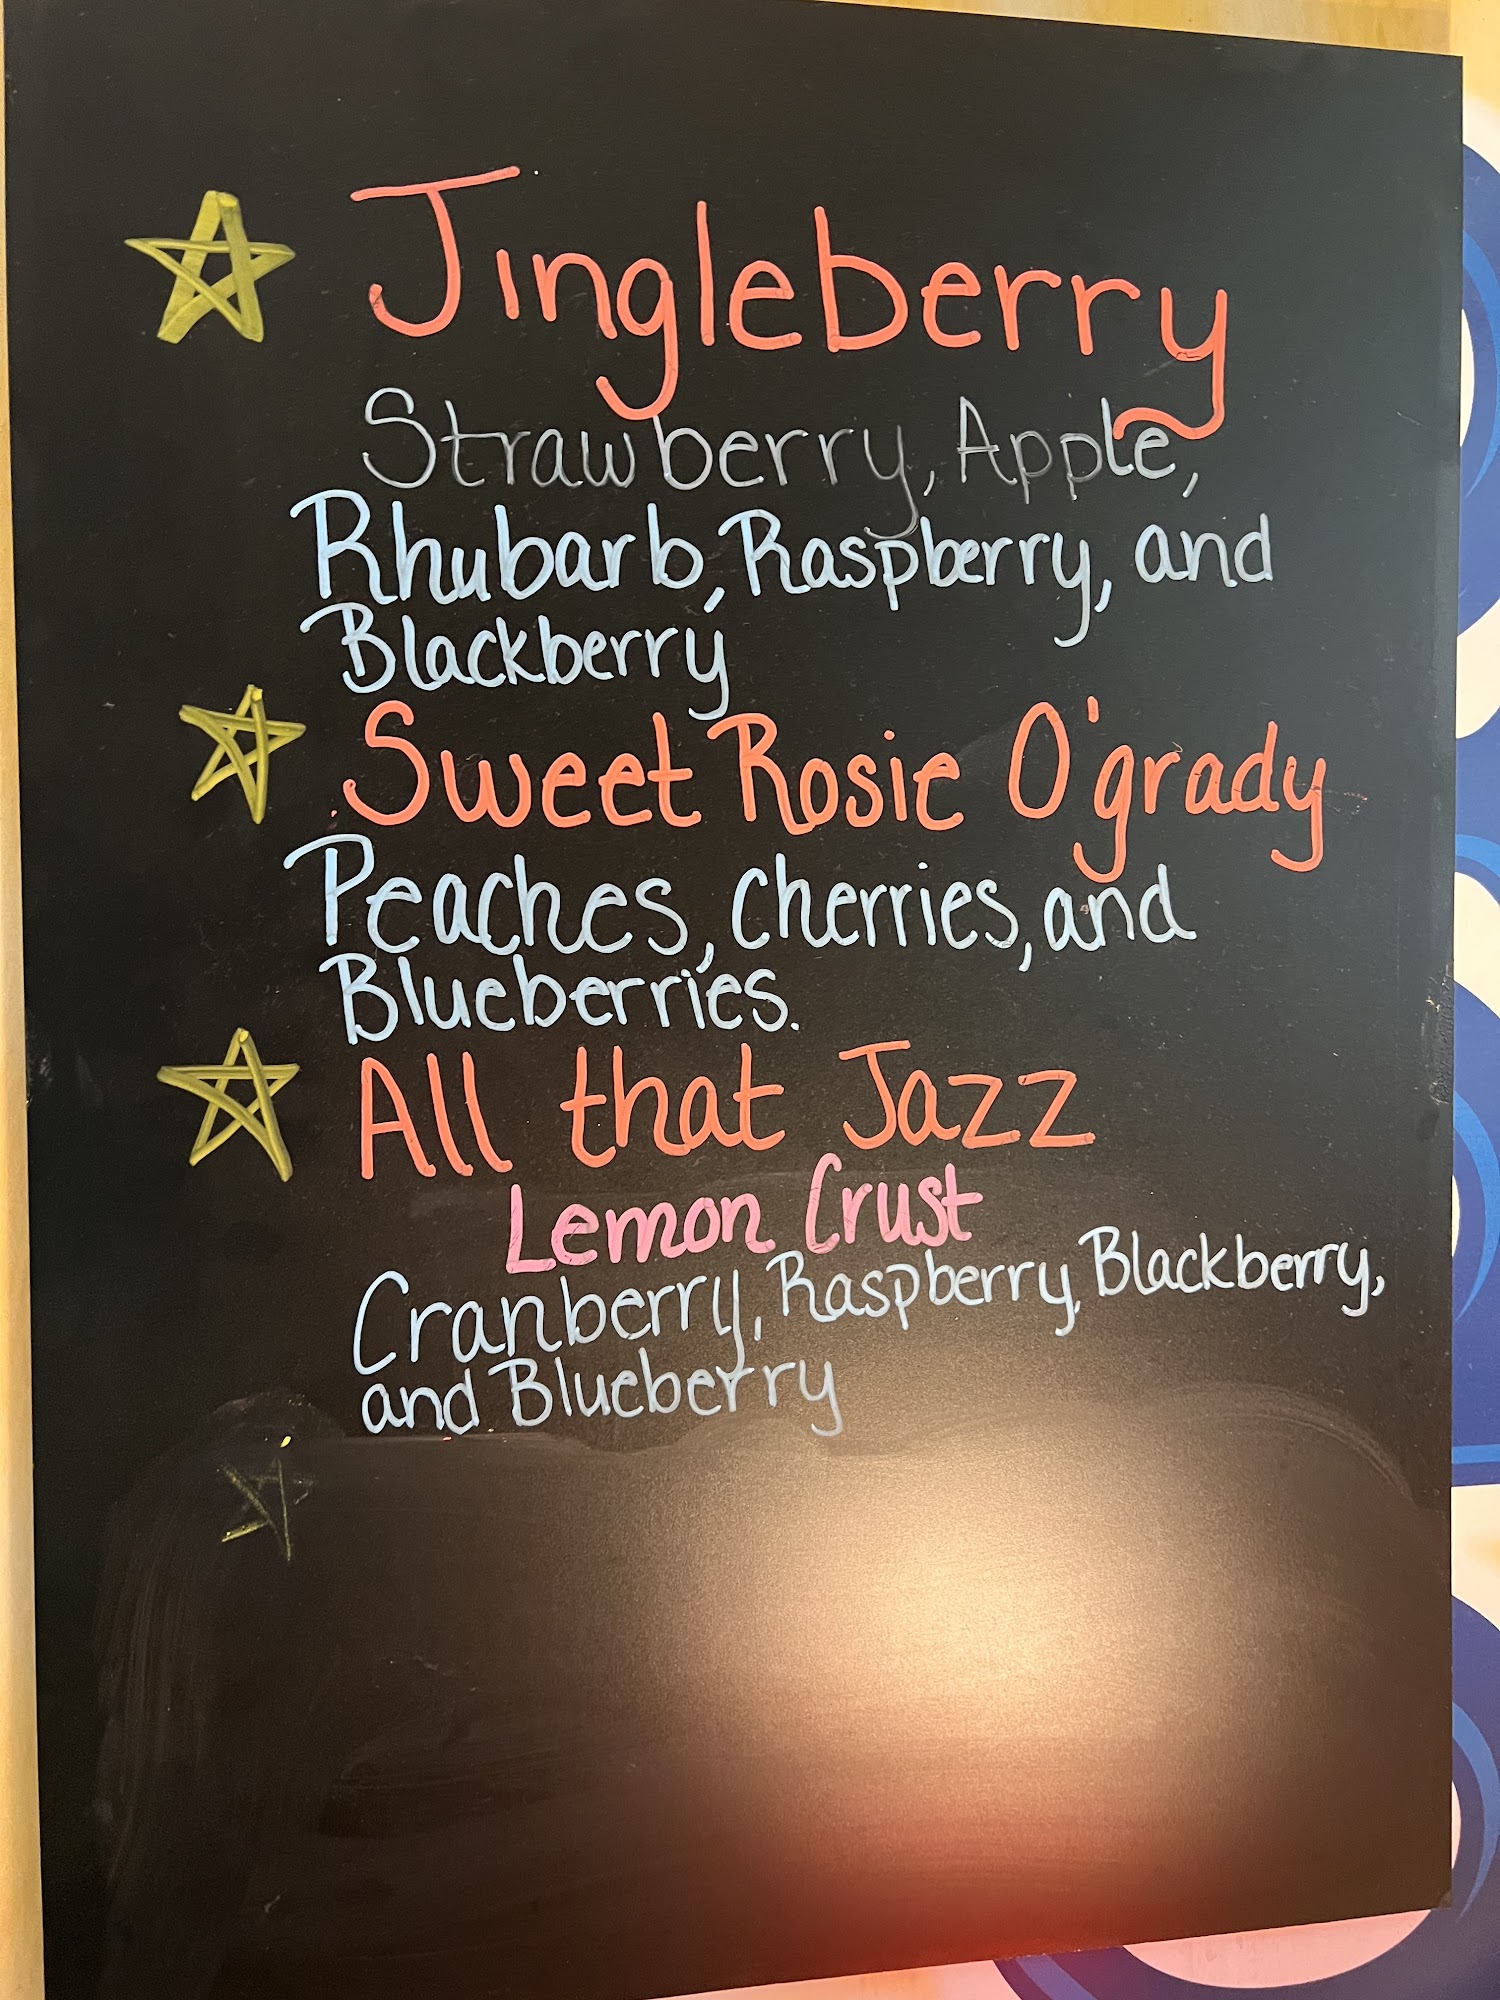 Jingleberry
Strawberry, Apple,
Rhubarb, Raspberry, and
Blackberry
Sweet Rosie O'grady
Peaches, cherries, and
Blueberries.
All that Jazz
Lemon Crust
Cranberry, Raspberry, Blackberry,
and Blueberry